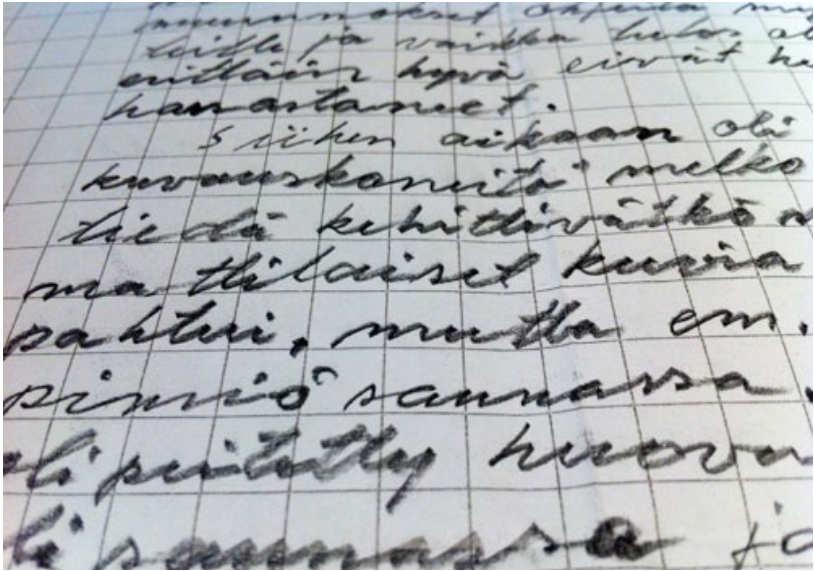 ohjeita
teille ja vaikka tulos ol
erittäin hyvä eivät he
harrastaneet.
siihen aikaan oli
kuvauskoneita melko
tiedä kehittivätkö
ma ttilaiset kuvia
pahtui, mutta em.
pimiö saunassa.
oli peitetty huova
li saunassa ja